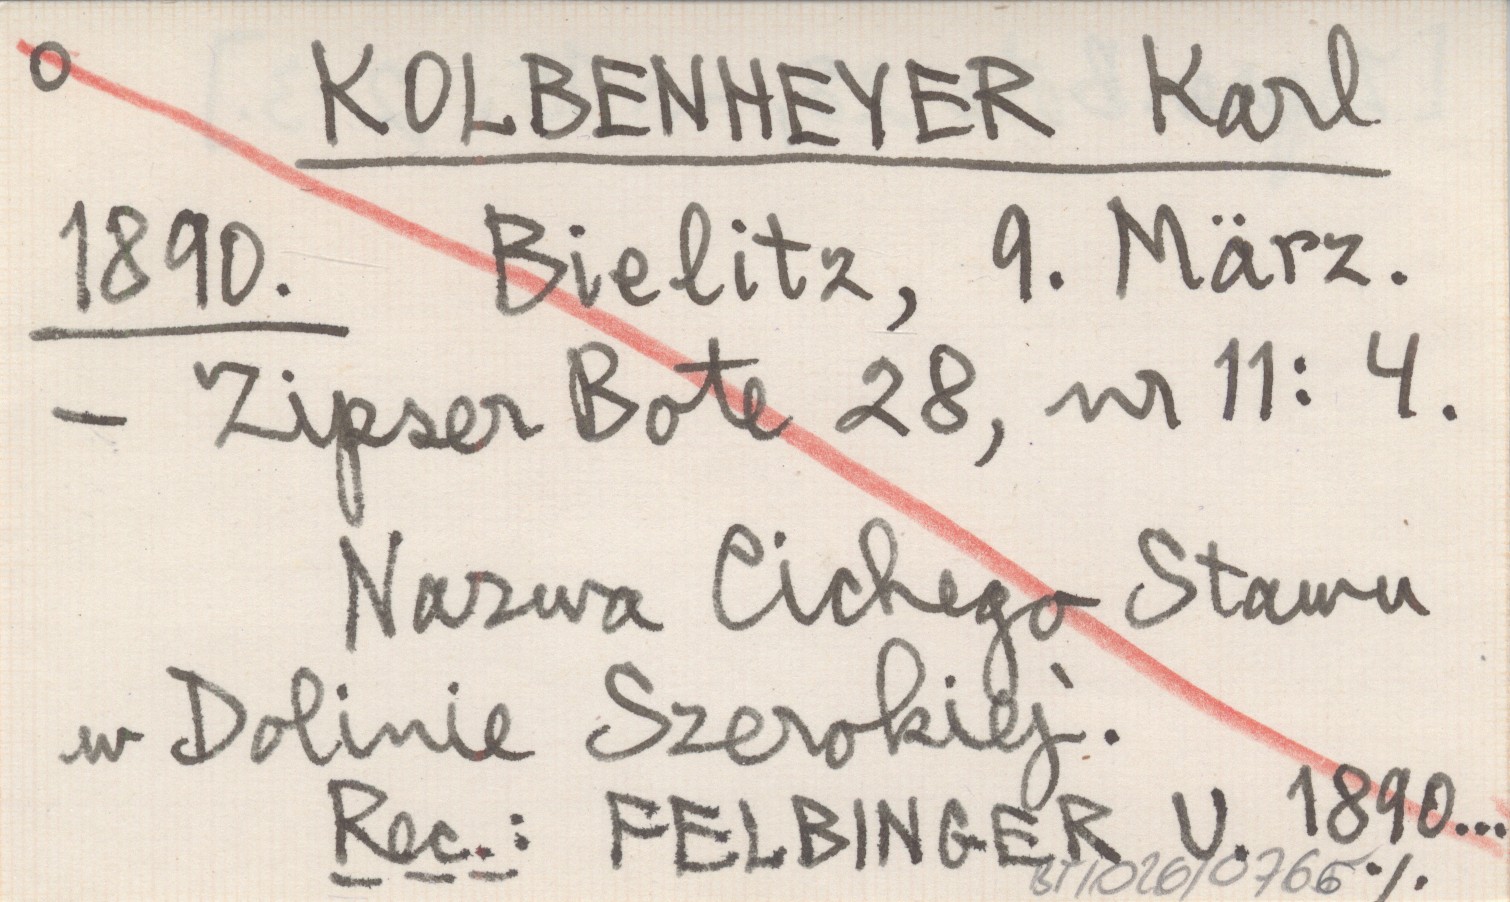 o KOLBENHEYER Karl
1890. Bielitz, 9. März.
– Zipser Bote 28, nr 11: 4.
Nazwa Cichego Stawu
w Dolinie Szerokiej.
Rec.: FELBINGER U. 1890...
BT/026/0766 ./.